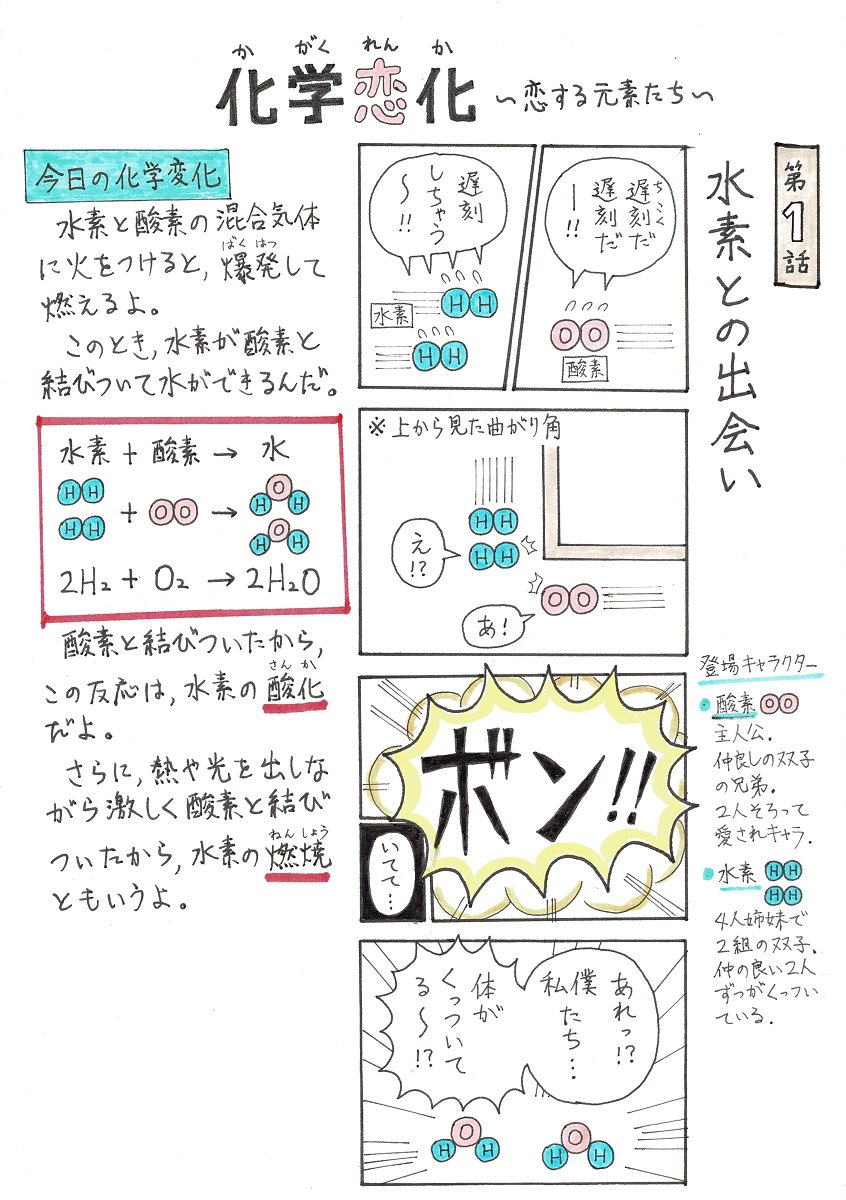 かがくれんか
化学恋化 〜恋する元素たち〜
第1話
水素との出会い
ちこく
遅刻だ
遅刻だ
ー!!
OO
酸素
遅刻
しちゃう
〜!!
HH
水素
HH
※上から見た曲がり角
HH
HH
え!?
OO
あ!
ボン!!
いてて…
あれっ!?
僕たち…
私
体が
くっついて
る〜!?
O
H H
O
H H
今日の化学変化
水素と酸素の混合気体
に火をつけると,爆発して
ばくはつ
燃えるよ。
このとき,水素が酸素と
結びついて水ができるんだ。
水素+酸素→水
HH
HH + OO →
O
H H
O
H H
2H₂+O₂→2H₂O
酸素と結びついたから,
さんか
この反応は,水素の酸化
だよ。
さらに,熱や光を出しな
がら激しく酸素と結び
ねんしょう
ついたから,水素の燃焼
ともいうよ。
登場キャラクター
・酸素 OO
主人公.
仲良しの双子
の兄弟.
2人そろって
愛されキャラ.
・水素 HH
HH
4人姉妹で
2組の双子.
仲の良い2人
ずつがくっつい
ている.